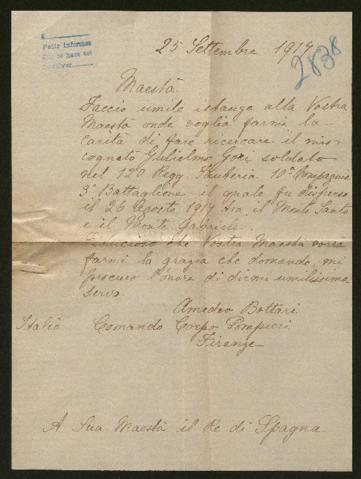 25 Settembre 1917
2838
Pedir informes
Maestà
Faccio umile istanza alla Vostra
Maestà onde voglia farmi la
carità di fare ricercare il mio
cognato Gulielmo Gori soldato
nel 127 Regg. Fanteria 10ª Compagnia
3º Battaglione il quale fu disperso
il 26 Agosto 1917 tra il Monte Santo
e il Monte Gabriele.
Fiducioso che Vostra Maestà vorrà
farmi la grazia che domando, mi
procuro l'onore di dirmi umilissimo
servo
Amedeo Bottari
Italia Comando Corpo Pompieri
Firenze
A Sua Maestà il Re di Spagna